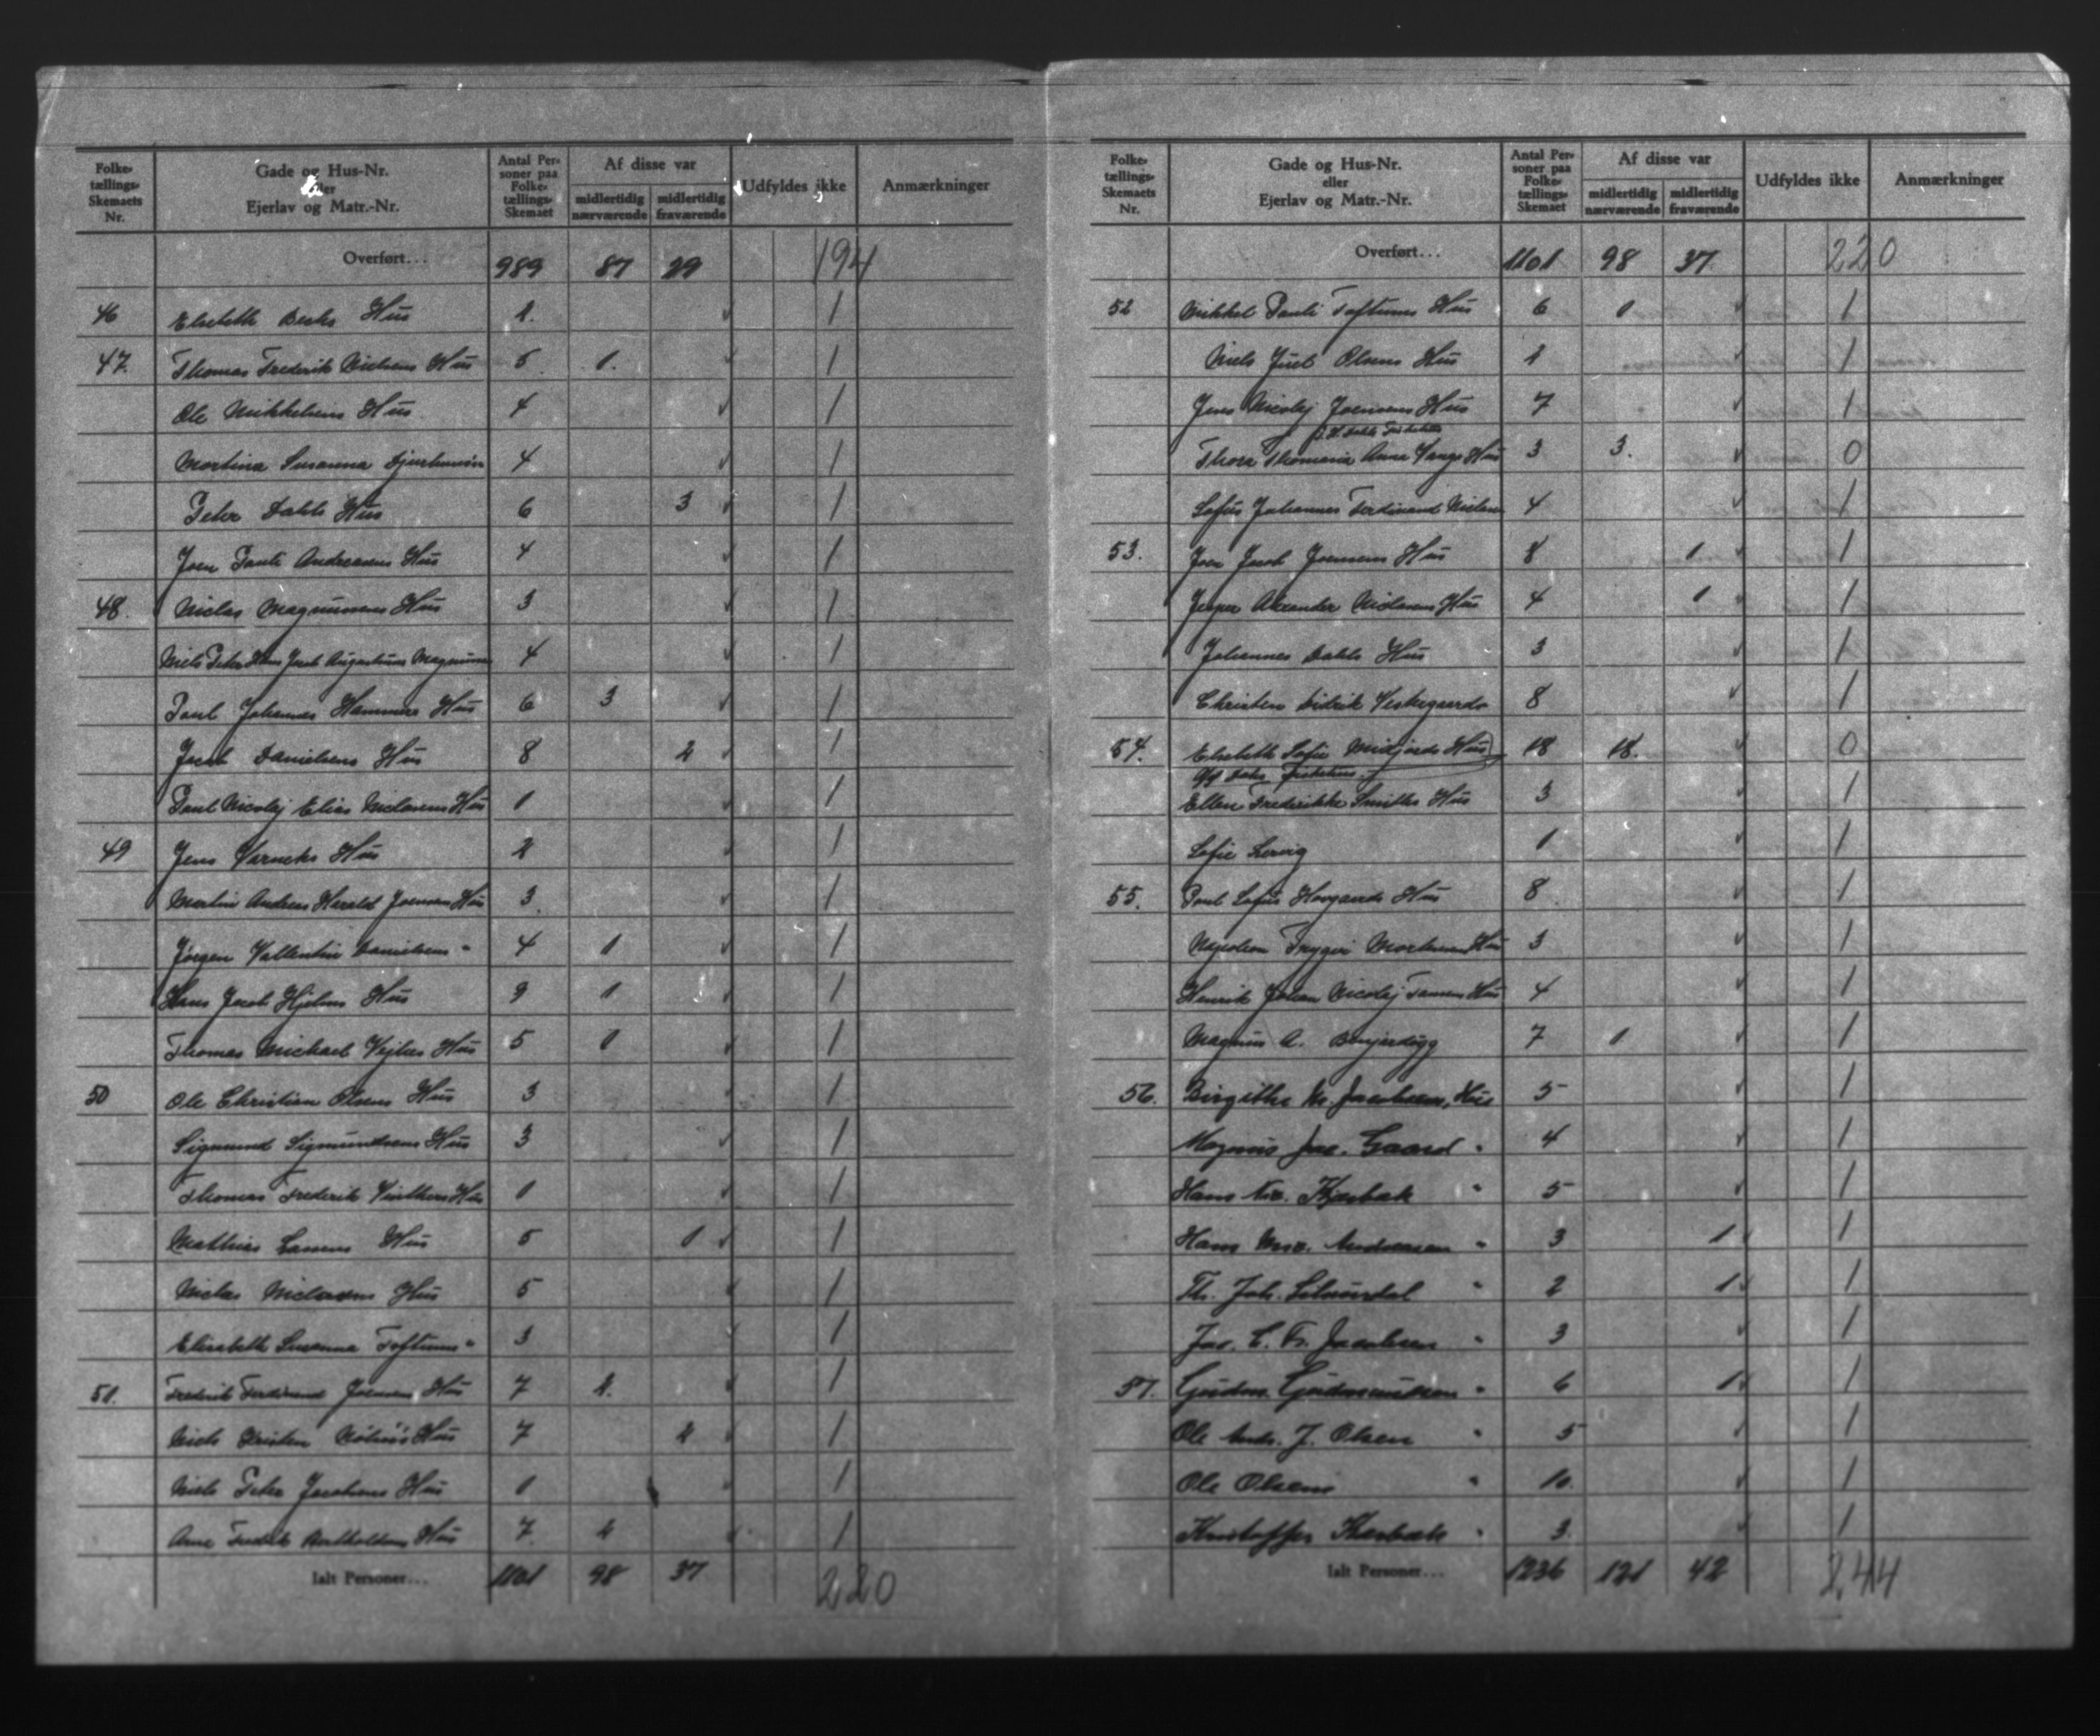 Folke-tællings-Skemaets Nr. | Gade og Hus-Nr. eller Ejerlav og Matr.-Nr. | Antal Per-soner paa Folke-tællings-Skemaet | Af disse var midlertidig nærværende | midlertidig fraværende | Udfyldes ikke | Anmærkninger
Overført... 989 87 29 194
46 Elsebeth Becks Hus 2. 1
47. Thomas Frederik Nielsens Hus 5. 1. 1
Ole Mikkelsens Hus 4 1
Martina Susanna Djurhuus 4 1
Peter Dahls Hus 6 3 1
Joen Pauli Andreasens Hus 4 1
48. Niclas Magnussens Hus 3 1
Niels Peter Hans Jacob Augustinus Magnussen 4 1
Poul Johannes Hammers Hus 6 3 1
Jacob Danielsens Hus 8 2 1
Poul Nicolaj Elias Niclasens Hus 1 1
49 Jens Varncks Hus 2 1
Martin Andreas Harald Joensens Hus 3. 1
Jørgen Vallentin Danielsens " 4 1 1
Hans Jacob Hjelms Hus 9 1 1
Thomas Michael Vejhes Hus 5 1 1
50 Ole Christian Olsens Hus 3 1
Sigmund Sigmundsens Hus 3 1
Thomas Frederik Vinthers Hus 1 1
Mathias Hus 5 1 1
Niclas Niclasens Hus 5 1
Elisabeth Susanna Toftums " 3 1
51. Frederik Ferdinand Joensens Hus 7 2. 1
Niels Kristen Hus 7 2 1
Niels Peter Jacobsens Hus 1 1
Arne Fredrik Bertholdsens Hus 7. 2 1
Ialt Personer... 1101 98 37 220
Folke-tællings-Skemaets Nr. | Gade og Hus-Nr. eller Ejerlav og Matr.-Nr. | Antal Per-soner paa Folke-tællings-Skemaet | Af disse var midlertidig nærværende | midlertidig fraværende | Udfyldes ikke | Anmærkninger
Overført... 1101 98 37 220
52 Mikkel Pauli Toftums Hus 6 1 1
Niels Juel Olsens Hus 2 1
Jens Nicolaj Joensens Hus 7 1
Dahls Fiskehus
Thora Thomasia Anna Vangs Hus 3 3. 0
Sofus Johannes Ferdinand Nielsen 4 1
53. Joen Jacob Joensens Hus 8 1 1
Jesper Alexander Niclasens Hus 4 1 1
Johannes Dahls Hus 3 1
Christen Didrik Vestergaards 8 1
54. Elsebeth Sofie Midjords Hus 18 18. 0
Fiskehus
Ellen Frederikke Smiths Hus 3 1
Sofie Lervig 1 1
55. Poul Sofus Hovgaards Hus 8 1
Napoleon Tryggvi Mortensens Hus 3 1
Henrik Johan Nicolaj Hus 4 1
Magnus A. Bonjardygg 7 1 1
56. Birgithe M. Jacobsens, Hus 5 1
Magnus Jac. Gaard " 4 1
Hans Nic. Kjærbæk " 5 1
Hans Andreasen " 3 1 1
Th. Joh. " 2 1 1
Jac. C. Fr. Jacobsen " 3 1
57. Gudm. Gudmundsen " 6 1 1
Ole Andr. J. Olsen " 5 1
Ole Olsens " 10. 1
Kristoffer Kjærbæk " 3 1
Ialt Personer... 1236 121 42 244